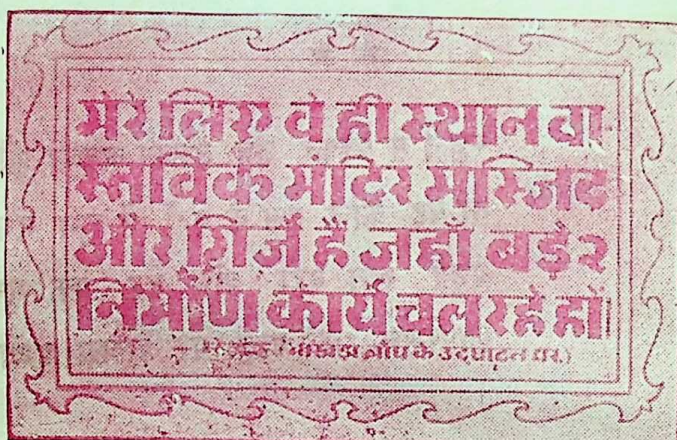 मेरे लिए वे ही स्थान वा-
स्तविक मंदिर मस्जिद
और गिर्जे हैं जहाँ बड़े २
निर्माण कार्य चल रहे हों।
(भाखड़ा बाँध के उदघाटन पर)